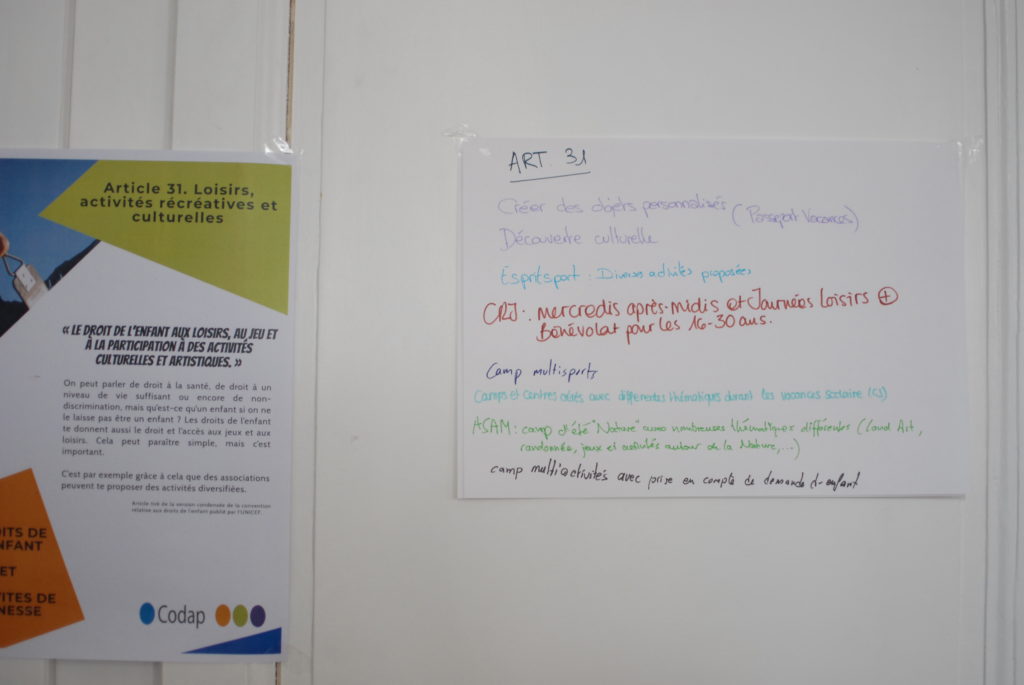 Article 31. Loisirs,
activités récréatives et
culturelles
« LE DROIT DE L'ENFANT AUX LOISIRS, AU JEU ET
À LA PARTICIPATION À DES ACTIVITÉS
CULTURELLES ET ARTISTIQUES. »
On peut parler de droit à la santé, de droit à un
niveau de vie suffisant ou encore de non-
discrimination, mais qu'est-ce qu'un enfant si on ne
le laisse pas être un enfant ? Les droits de l'enfant
te donnent aussi le droit et l'accès aux jeux et aux
loisirs. Cela peut paraître simple, mais c'est
important.
C'est par exemple grâce à cela que des associations
peuvent te proposer des activités diversifiées.
Article tiré de la version condensée de la convention
relative aux droits de l'enfant publié par l'UNICEF.
ITS DE
NFANT
ET
ITES DE
NESSE
Codap
ART. 31
Créer des objets personnalisés (Passeport Vacances)
Découverte culturelle
Espritsport : Diverses activités proposées
CRJ : mercredis après-midis et Journées Loisirs +
Bénévolat pour les 16-30 ans.
Camp multisports
Camps et Centres aérés avec différentes thématiques durant les vacances scolaire (CJ)
ASAM : camp d'été "Nature" avec nombreuses thématiques différentes (Land Art,
randonnée, jeux et activités autour de la Nature,...)
camp multiactivités avec prise en compte de demande d'enfant